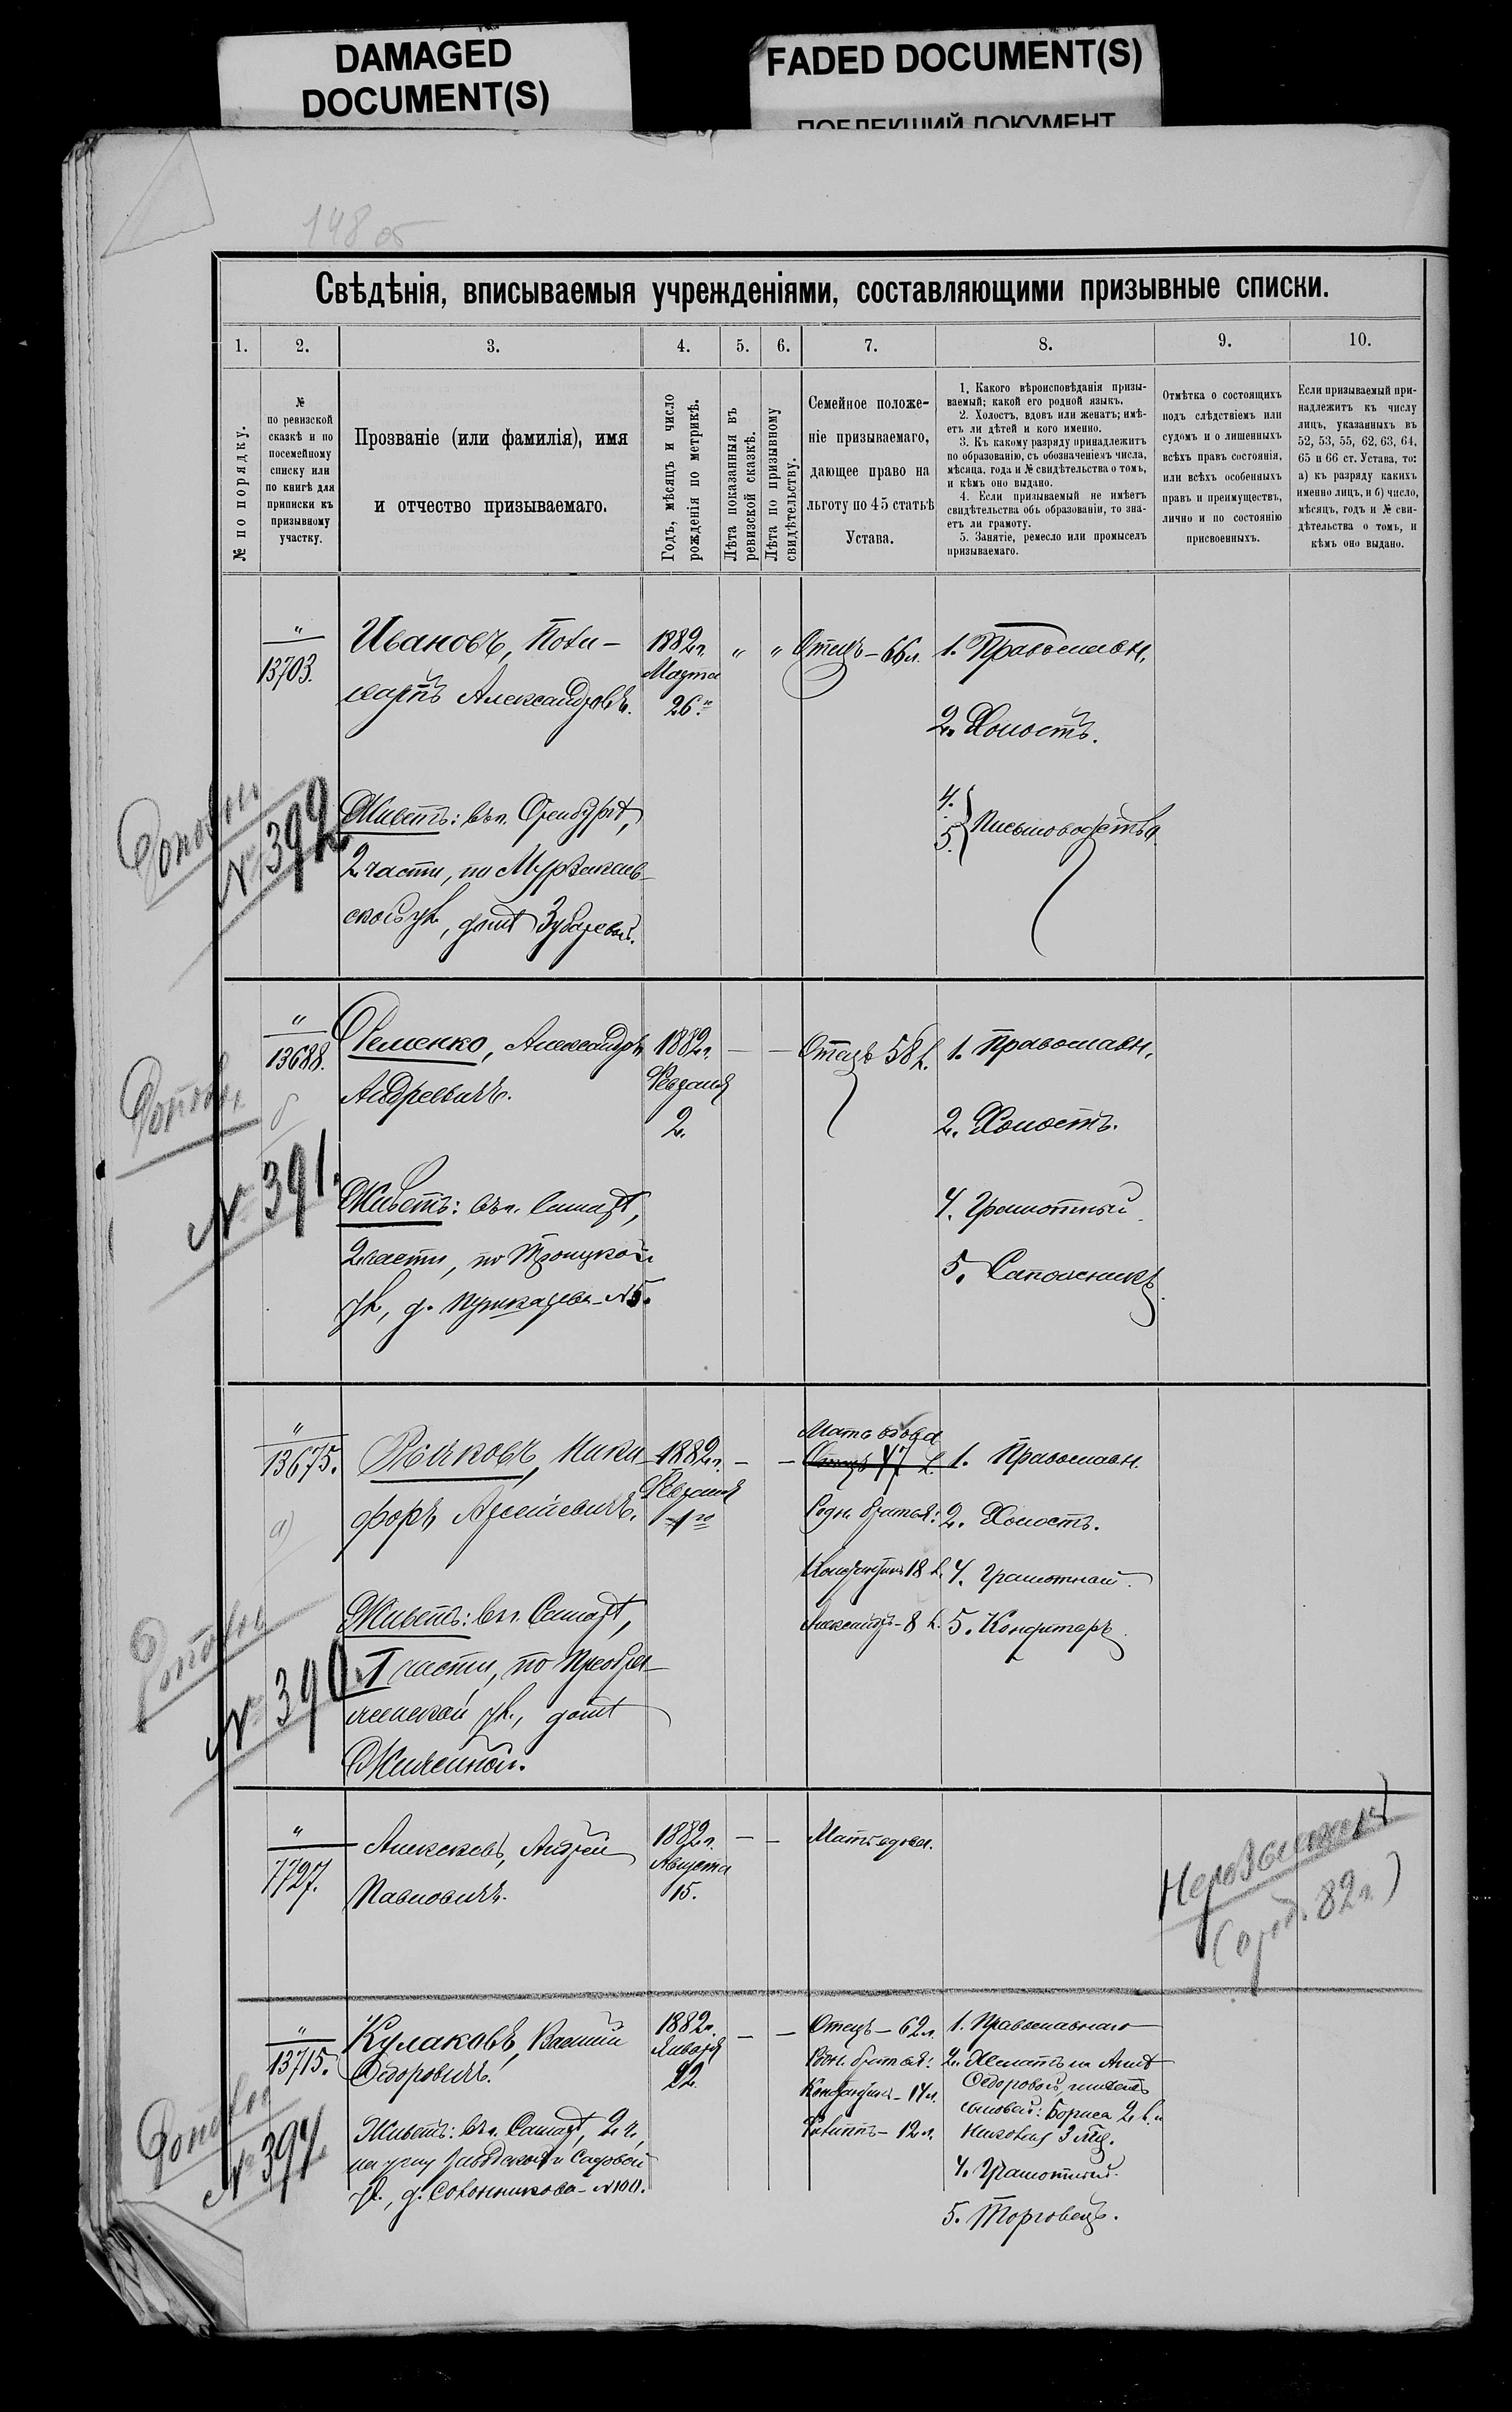 DAMAGED
DOCUMENT(S)
FADED DOCUMENT(S)
ПОБЛЕКШИЙ ДОКУМЕНТ
148 об
Свѣдѣнія, вписываемыя учрежденіями, составляющими призывные списки.
1. 2. 3. 4. 5. 6. 7. 8. 9. 10.
№ по порядку.
№
по ревизской
сказкѣ и по
посемейному
списку или
по книгѣ для
приписки къ
призывному
участку.
Прозваніе (или фамилія), имя
и отчество призываемаго.
Годъ, мѣсяцъ и число
рожденія по метрикѣ.
Лѣта показанныя въ
ревизской сказкѣ.
Лѣта по призывному
свидѣтельству.
Семейное положе-
ніе призываемаго,
дающее право на
льготу по 45 статьѣ
Устава.
1. Какого вѣроисповѣданія призы-
ваемый; какой его родной языкъ.
2. Холостъ, вдовъ или женатъ; имѣ-
етъ ли дѣтей и кого именно.
3. Къ какому разряду принадлежитъ
по образованію, съ обозначеніемъ числа,
мѣсяца, года и № свидѣтельства о томъ,
и кѣмъ оно выдано.
4. Если призываемый не имѣетъ
свидѣтельства объ образованіи, то зна-
етъ ли грамоту.
5. Занятіе, ремесло или промыселъ
призываемаго.
Отмѣтка о состоящихъ
подъ слѣдствіемъ или
судомъ и о лишенныхъ
всѣхъ правъ состоянія,
или всѣхъ особенныхъ
правъ и преимуществъ,
лично и по состоянію
присвоенныхъ.
Если призываемый при-
надлежитъ къ числу
лицъ, указанныхъ въ
52, 53, 55, 62, 63, 64,
65 и 66 ст. Устава, то:
а) къ разряду какихъ
именно лицъ, и б) число,
мѣсяцъ, годъ и № сви-
дѣтельства о томъ, и
кѣмъ оно выдано.
"
13703.
Ивановъ, Поли-
карпъ Александровъ.
1882 г.
Марта
26.го
" "
Отецъ - 66 л.
1. Православн.
2. Холостъ.
4.
5. } Письмоводств.
№ 392
Живетъ: въ г. Оренбургѣ,
2 части, по
ской ул., домѣ Зубаревой.
"
13688.
б
Феменко, Александръ
Андреевичъ.
1882 г.
Февраля
2.
— —
Отецъ 58 л.
1. Православн.
2. Холостъ.
4. Грамотный
5. Сапожникъ.
№ 391.
Живетъ: въ г. Самарѣ,
2 части, по Троицкой
ул., д. Пушкарева - № 5.
"
13675.
а)
Рычковъ, Ники-
форъ Арсеньевичъ.
1882 г.
Февраля
1го
— —
Мать вдова
Отецъ 47 л.
Родн. братья:
Кондратій 18 л.
Александръ - 8 л.
1. Православн.
2. Холостъ.
4. Грамотный.
5. Кондитеръ.
№ 390.
Живетъ: въ г. Самарѣ,
I части, по Преобра-
женской ул., домѣ
"
7727.
Алексѣевъ, Андрей
Павловичъ.
1882 г.
Августа
15.
— —
Мать вдова.
(
82 г.)
"
13715.
Кулаковъ, Василій
Ѳедоровичъ.
1882 г.
Января
22.
— —
Отецъ - 62 л.
Родн. братья:
Кондратій - 14 л.
Филиппъ - 12 л.
1. Православнаго
2. Женатъ на Аннѣ
Ѳедоровой, имѣетъ
сыновей: Бориса 2 л. и
Николая 3 мѣс.
4. Грамотный.
5. Торговецъ.
№ 394
Живетъ: въ г. Самарѣ, 2 ч.,
на углу Заводской и Садовой
ул., д. Соловникова - № 100.